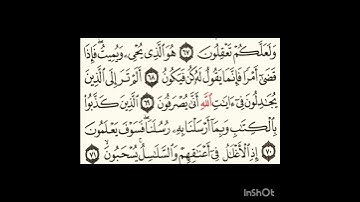 وَلَعَلَّكُمْ تَعْقِلُونَ ٦٧ هُوَ الَّذِي يُحْيِي وَيُمِيتُ فَإِذَا
قَضَىٰ أَمْرًا فَإِنَّمَا يَقُولُ لَهُ كُنْ فَيَكُونُ ٦٨ أَلَمْ تَرَ إِلَى الَّذِينَ
يُجَادِلُونَ فِي آيَاتِ اللَّهِ أَنَّىٰ يُصْرَفُونَ ٦٩ الَّذِينَ كَذَّبُوا
بِالْكِتَابِ وَبِمَا أَرْسَلْنَا بِهِ رُسُلَنَا فَسَوْفَ يَعْلَمُونَ
٧٠ إِذِ الْأَغْلَالُ فِي أَعْنَاقِهِمْ وَالسَّلَاسِلُ يُسْحَبُونَ ٧١
InShOt